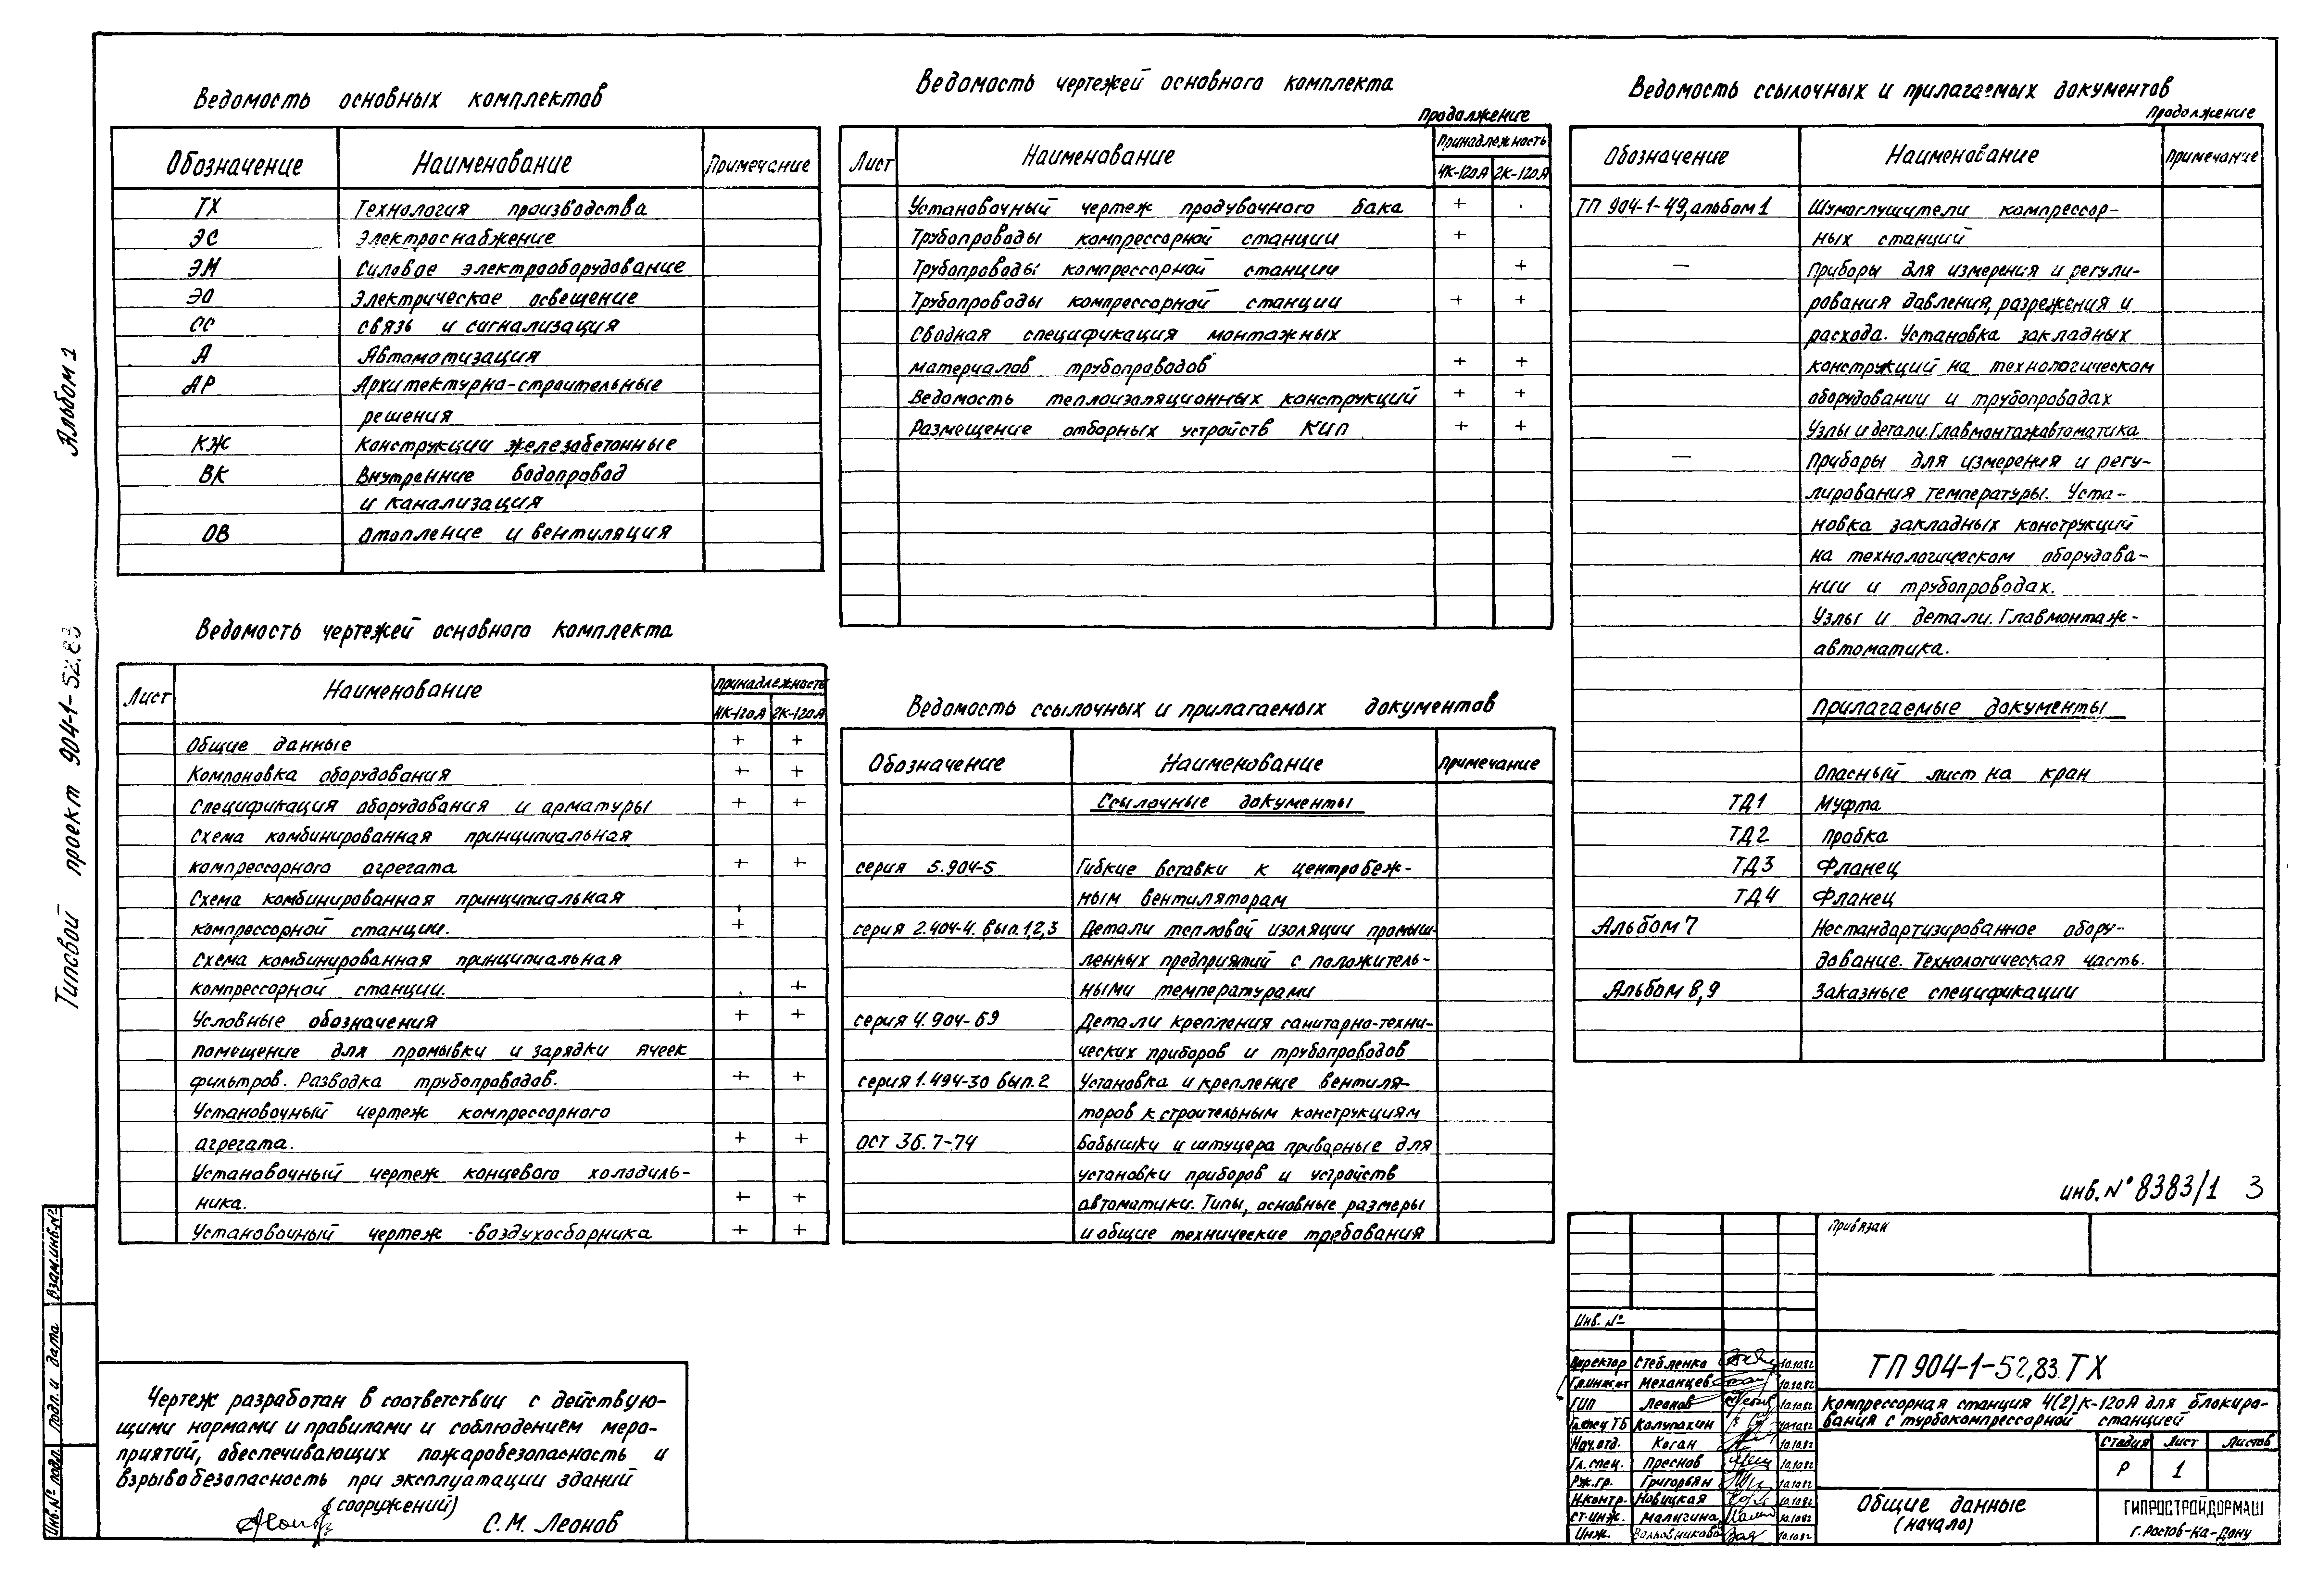 Альбом 1
Типовой проект 904-1-52.83
Ведомость основных комплектов
Обозначение Наименование Примечание
ТХ Технология производства
ЭС Электроснабжение
ЭМ Силовое электрооборудование
ЭО Электрическое освещение
СС Связь и сигнализация
А Автоматизация
АР Архитектурно-строительные
решения
КЖ Конструкции железобетонные
ВК Внутренние водопровод
и канализация
ОВ Отопление и вентиляция
Ведомость чертежей основного комплекта
Лист Наименование Принадлежность
4К-120А 2К-120А
Общие данные + +
Компоновка оборудования + +
Спецификация оборудования и арматуры + +
Схема комбинированная принципиальная
компрессорного агрегата + +
Схема комбинированная принципиальная
компрессорной станции. +
Схема комбинированная принципиальная
компрессорной станции. +
Условные обозначения + +
Помещение для промывки и зарядки ячеек
фильтров. Разводка трубопроводов. + +
Установочный чертеж компрессорного
агрегата. + +
Установочный чертеж концевого холодиль-
ника. + +
Установочный чертеж воздухосборника + +
Ведомость чертежей основного комплекта
продолжение
Лист Наименование Принадлежность
4К-120А 2К-120А
Установочный чертеж продувочного бака +
Трубопроводы компрессорной станции +
Трубопроводы компрессорной станции +
Трубопроводы компрессорной станции + +
Сводная спецификация монтажных
материалов трубопроводов + +
Ведомость теплоизоляционных конструкций + +
Размещение отборных устройств КИП + +
Ведомость ссылочных и прилагаемых документов
Обозначение Наименование Примечание
Ссылочные документы
серия 5.904-5 Гибкие вставки к центробеж-
ным вентиляторам
серия 2.404-4. вып.1,2,3 Детали тепловой изоляции промыш-
ленных предприятий с положитель-
ными температурами
серия 4.904-69 Детали крепления санитарно-техни-
ческих приборов и трубопроводов
серия 1.494-30 вып.2 Установка и крепление вентиля-
торов к строительным конструкциям
ОСТ 36.7-74 Бобышки и штуцера приварные для
установки приборов и устройств
автоматики. Типы, основные размеры
и общие технические требования
Ведомость ссылочных и прилагаемых документов
продолжение
Обозначение Наименование Примечание
ТП 904-1-49, альбом 1 Шумоглушители компрессор-
ных станций
— Приборы для измерения и регули-
рования давления, разрежения и
расхода. Установка закладных
конструкций на технологическом
оборудовании и трубопроводах
Узлы и детали. Главмонтажавтоматика
— Приборы для измерения и регу-
лирования температуры. Уста-
новка закладных конструкций
на технологическом оборудова-
нии и трубопроводах.
Узлы и детали. Главмонтаж-
автоматика.
Прилагаемые документы
Опасный лист на кран
ТД1 Муфта
ТД2 Пробка
ТД3 Фланец
ТД4 Фланец
Альбом 7 Нестандартизированное обору-
дование. Технологическая часть.
Альбом 8,9 Заказные спецификации
инв. № 8383/1 3
Чертеж разработан в соответствии с действую-
щими нормами и правилами и соблюдением меро-
приятий, обеспечивающих пожаробезопасность и
взрывобезопасность при эксплуатации зданий
(сооружений)
С.М. Леонов
Взам.инв.№
Подп. и дата
Инв.№ подл.
Привязан
Инв. №
Директор Стебленко 10.10.82
Гл.инж.ин-т Механцев 10.10.82
ГИП Леонов 10.10.82
Колупахин 10.10.82
Нач.отд. Коган 10.10.82
Гл. спец. Преснов 10.10.82
Рук.гр. Григорьян 10.10.82
Н.контр. Новицкая 10.10.82
Ст.инж. Малигина 10.10.82
Инж. 10.10.82
ТП 904-1-52,83. ТХ
Компрессорная станция 4(2)К-120А для блокиро-
вания с турбокомпрессорной станцией
Стадия Лист Листов
Р 1
Общие данные
(начало)
ГИПРОСТРОЙДОРМАШ
г. Ростов-на-Дону